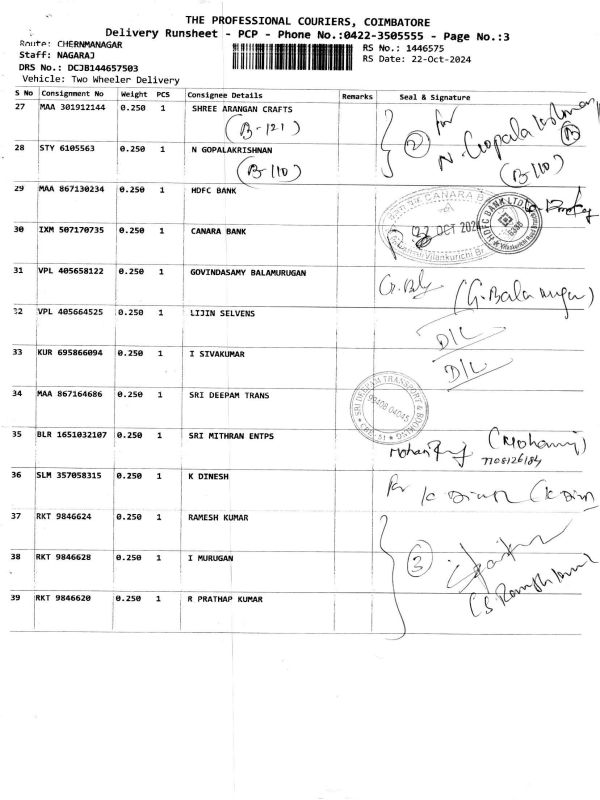 THE PROFESSIONAL COURIERS, COIMBATORE
Delivery Runsheet - PCP - Phone No.:0422-3505555 - Page No.:3
Route: CHERNMANAGAR
RS No.: 1446575
Staff: NAGARAJ
RS Date: 22-Oct-2024
DRS No.: DCJB144657503
Vehicle: Two Wheeler Delivery
S No Consignment No Weight PCS Consignee Details Remarks Seal & Signature
27 MAA 301912144 0.250 1 SHREE ARANGAN CRAFTS
(B-121)
for
2
N. Gopalakrishnan
28 STY 6105563 0.250 1 N GOPALAKRISHNAN
(B-110)
(B-110)
29 MAA 867130234 0.250 1 HDFC BANK
CANARA
HDFC BANK LTD
22 OCT 2024
30 IXM 507170735 0.250 1 CANARA BANK
Vilankurichi Br
31 VPL 405658122 0.250 1 GOVINDASAMY BALAMURUGAN
(G. Balamurugan)
32 VPL 405664525 0.250 1 LIJIN SELVENS
D/L
33 KUR 695866094 0.250 1 I SIVAKUMAR
D/L
34 MAA 867164686 0.250 1 SRI DEEPAM TRANS
SRI DEEPAM TRANSPORT & BOOKING
98408 04045
35 BLR 1651032107 0.250 1 SRI MITHRAN ENTPS
Mohanraj (Mohanraj)
7708126184
36 SLM 357058315 0.250 1 K DINESH
for K Dinesh (K Din
37 RKT 9846624 0.250 1 RAMESH KUMAR
38 RKT 9846628 0.250 1 I MURUGAN
3
(S. Ramesh kumar
39 RKT 9846620 0.250 1 R PRATHAP KUMAR